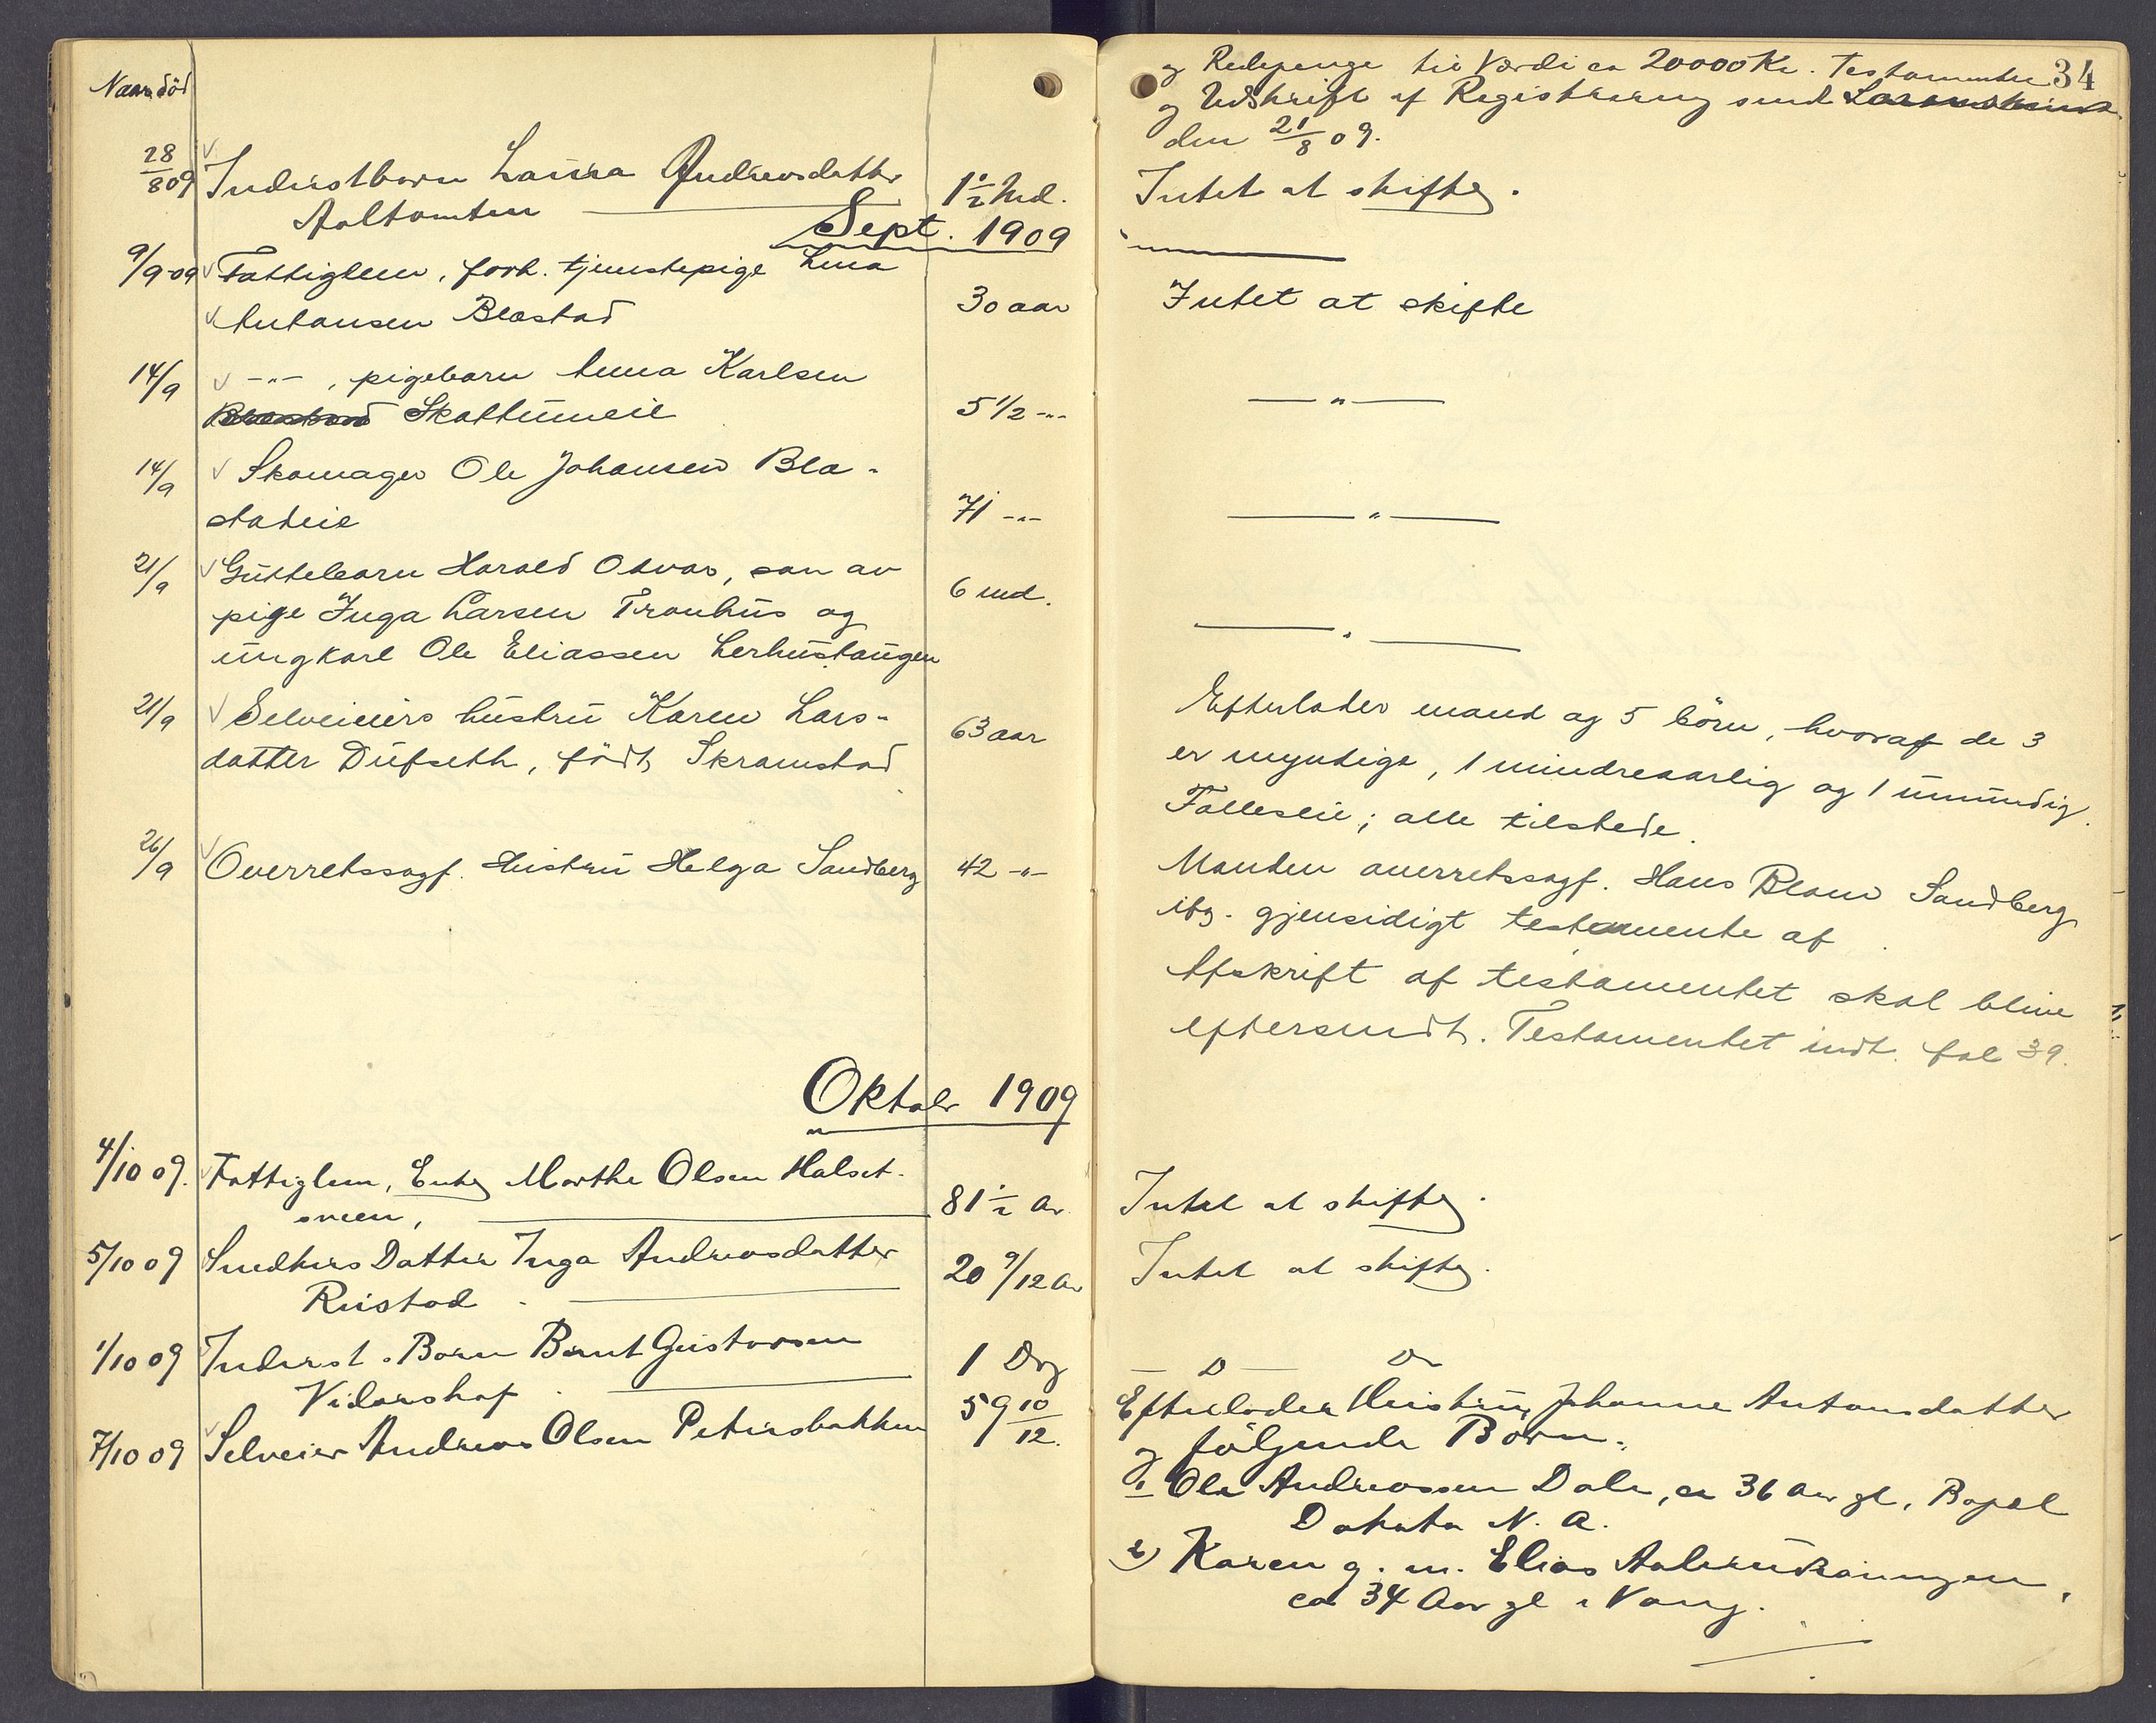 Naar död
28/8 09 Inderstbarn Laura Andreasdatter
Aaltomten 1 1/2 Md.
Sept. 1909
9/9-09 Fattiglem, forh. tjenstepige Lina
Antonsen Blæstad 30 aar
14/9 -"- , pigebarn Anna Karlsen
Skattumeie 5 1/2 -"-
14/9 Skomager Ole Johansen Blæ-
stadeie 71 -"-
21/9 Guttebarn Harald Odvar, søn av 6 md.
pige Inga Larsen Tronhus og
ungkarl Ole Eliassen Lerhustaugen
21/9 Selveiers hustru Karen Lars- 63 aar
datter Dufseth, födt Skramstad
26/9 Overretssagf. Hustru Helga Sandberg 42 -"-
Oktobr 1909
4/10 09. Fattiglem, Enke Marthe Olsen Halset-
sveen, 81 1/2 Ar
5/10 09 Datter Inga Andreasdatter 20 9/12 Ar
Rustad
1/10 09 Inderst. Barn Bernt Gustavsen 1 Dag
Vidarshof
7/10 09 Selveier Andreas Olsen Petersbakken 59 10/12.
34
og Redepenge til Værdi ca 20000 Kr. Testamentet
og Udskrift af Registrering sendt
den 21/8 09.
Intet at skifte.
Intet at skifte
— " —
— " —
— " —
Efterlader mand og 5 börn, hvoraf de 3
er myndige, 1 mindreaarlig og 1 umyndig.
Fælleseie; alle tilstede.
Manden overretssagf. Hans Sandberg
ifg. gjensidigt testamente af
Afskrift af testamentet skal blive
eftersendt. Testamentet indt. fol 39.
Intet at skifte.
Intet at skifte.
— D — Do
Efterlader Hustru Johanne Antonsdatter
og følgende Børn:
1 Ole Andreassen Dale, ca 36 Aar gl,
Dakota N. A.
2) Karen g. m. Elias
ca 34 Aar gl i Vang.